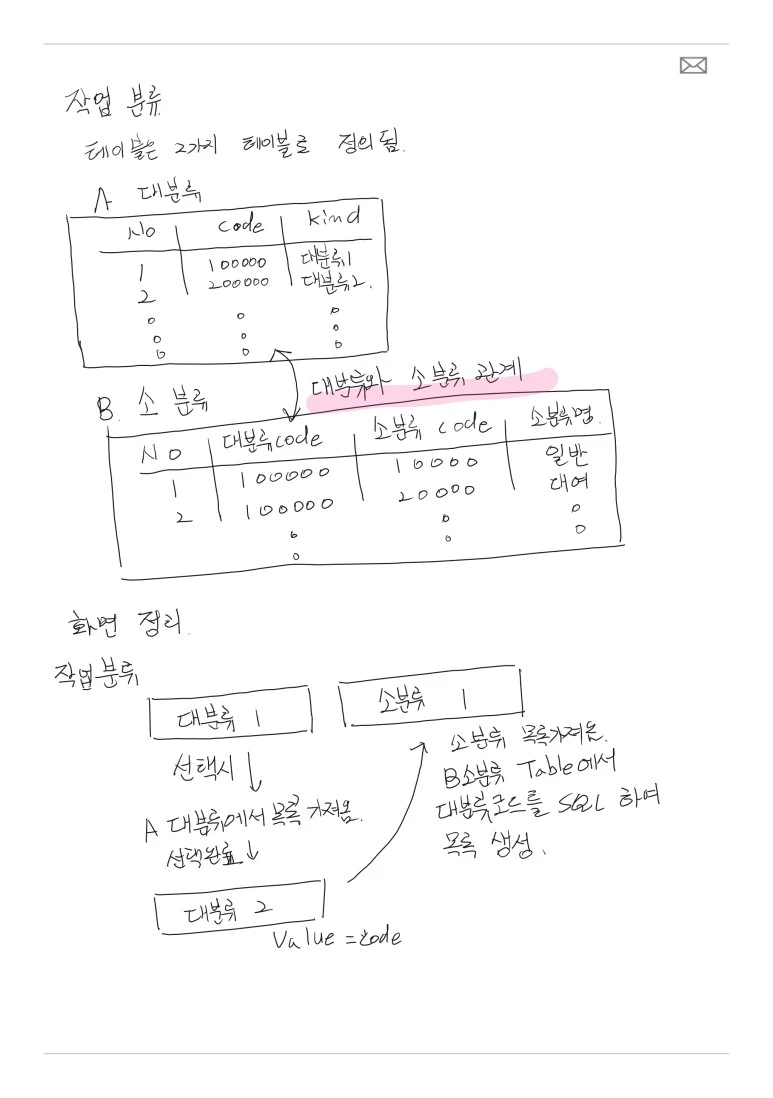 작업 분류
테이블은 2가지 테이블로 정의됨.
A 대분류
No code kind
1 100000 대분류1
2 200000 대분류2.
대분류와 소분류 관계
B. 소분류
No 대분류code 소분류 code 소분류명.
1 100000 10000 일반
2 100000 20000 대여
화면 정리.
작업분류
대분류 1 소분류 1
선택시
A 대분류에서 목록 가져옴.
선택완료
대분류 2
Value = code
소분류 목록가져옴.
B소분류 Table에서
대분류코드를 SQL 하여
목록 생성.